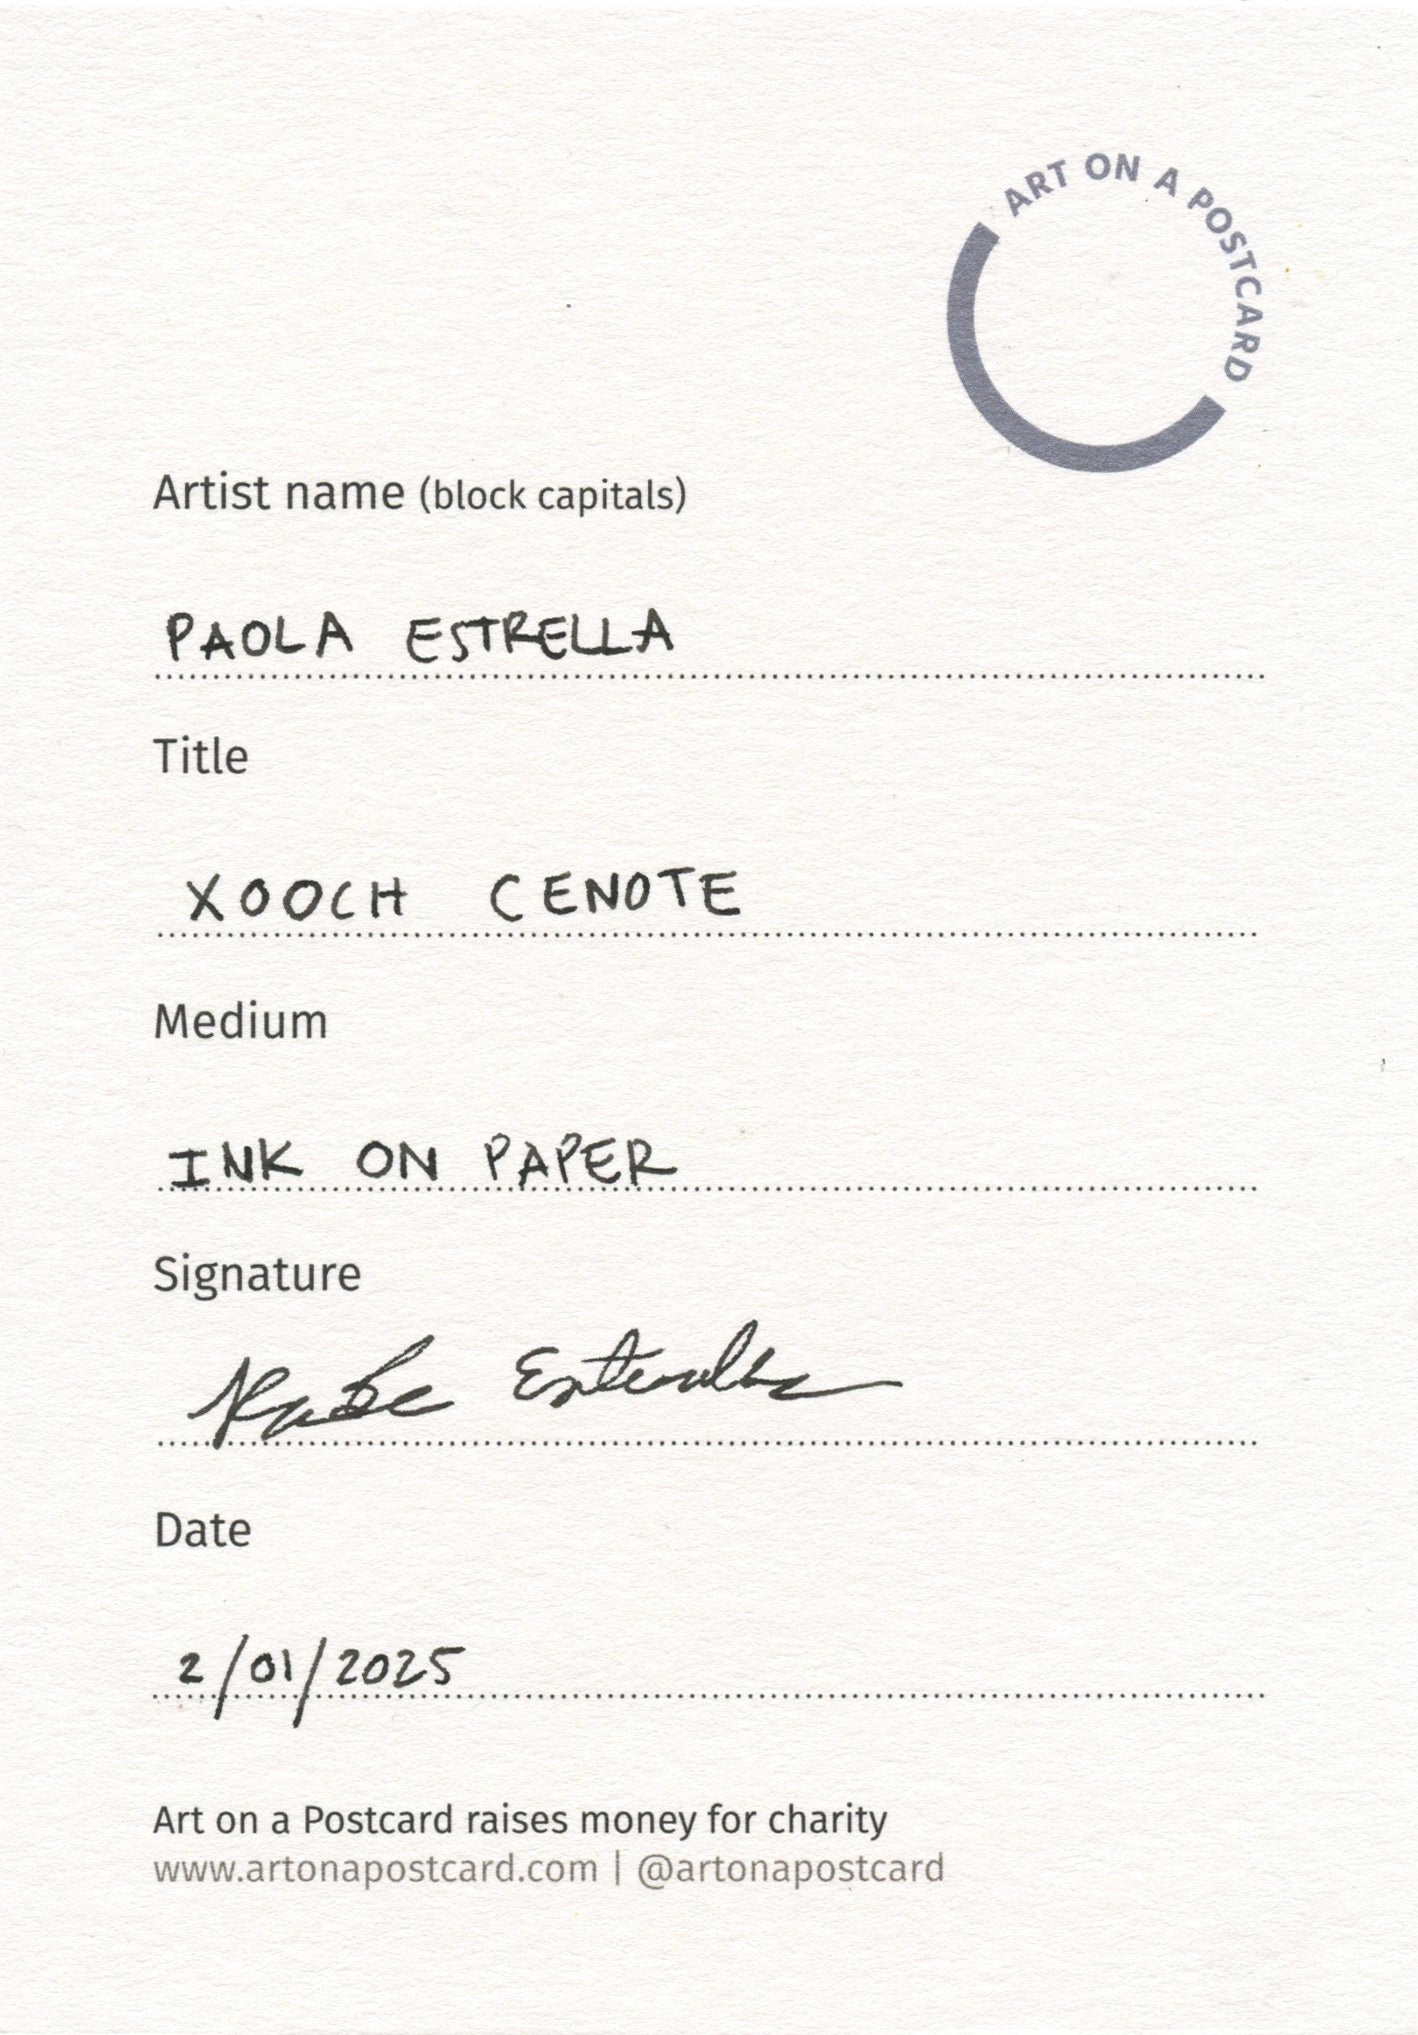 ART ON A POSTCARD
Artist name (block capitals)
PAOLA ESTRELLA
Title
XOOCH CENOTE
Medium
INK ON PAPER
Signature
Paola Estrella
Date
2/01/2025
Art on a Postcard raises money for charity
www.artonapostcard.com | @artonapostcard